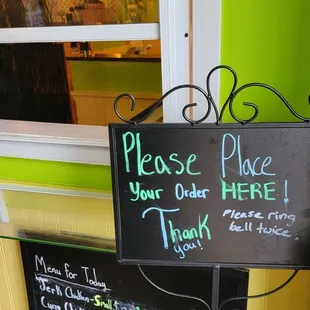 Please Place
Your Order HERE!
Thank you!
Please ring
bell twice.
Menu for Today
Jerk Chicken-Small
Curry